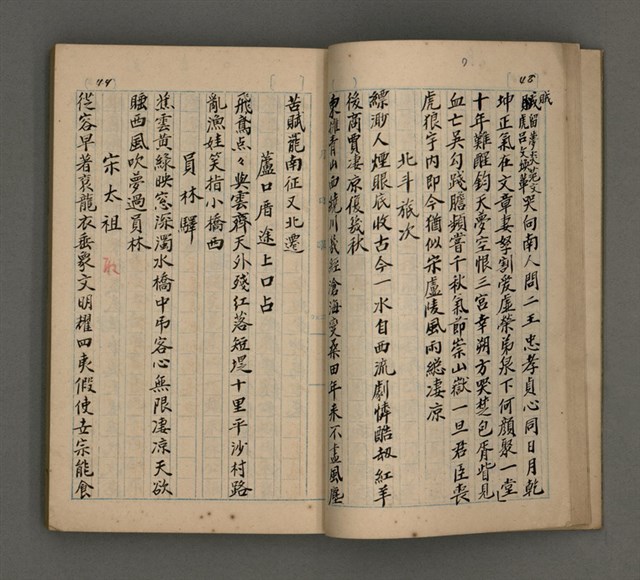 48
哭向南人問二王忠孝貞心同日月乾
坤正氣在文章妻孥割愛虛榮弟泉下何顏聚一堂
十年難醒鈞天夢空恨三宮幸朔方哭楚包胥皆見
血亡吳勾踐膽頻嘗千秋氣節崇山嶽一旦君臣喪
虎狼宇内即今猶似宋盧陵風雨總凄凉
北斗旅次
縹渺人煙眼底收古今一水自西流劇憐酷劫紅羊
後商賈凄凉復幾秋
東擁青山西繞川幾經滄海变桑田年来不盡風塵
44
苦賦罷南征又北還
蘆口厝途上口占
飛鳶点々與雲齊天外殘紅落短堤十里平沙村路
亂漁娃笑指小橋西
員林驛
蕉雲黄緑映窓深濁水橋中吊客心無限凄凉天欲
暝西風吹夢過員林
宋太祖
從容早著衮龍衣垂衆文明耀四夷假使世宗能食